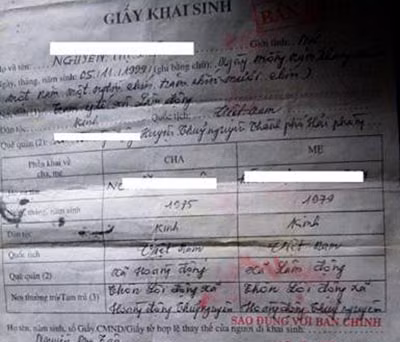 GIẤY KHAI SINH
BẢN
Họ và tên: NGUYỄN Giới tính: Nữ
Ngày, tháng, năm sinh: 05.11.1999 (ghi bằng chữ): Ngày mồng năm tháng
một năm một nghìn chín trăm chín mươi chín)
Nơi sinh: Trạm y tế xã Lâm động
Dân tộc: Kinh Quốc tịch: Việt Nam
Quê quán (2): Huyện Thuỷ nguyên Thành phố Hải phòng
Phần khai về cha, mẹ CHA MẸ
Họ và tên
Ngày, tháng, năm sinh 1975 1979
Dân tộc Kinh Kinh
Quốc tịch Việt Nam Việt Nam
Quê quán (2) Xã Hoàng động Xã Lâm động
Nơi thường trú/Tạm trú (3) Thôn Lôi động xã Thôn Lôi động xã
Hoàng động Thuỷ nguyên Hoàng động Thuỷ nguyên
SAO ĐÚNG VỚI BẢN CHÍNH
Họ tên, năm sinh, số Giấy CMND/Giấy tờ hợp lệ thay thế của người đi khai sinh:
Nguyễn